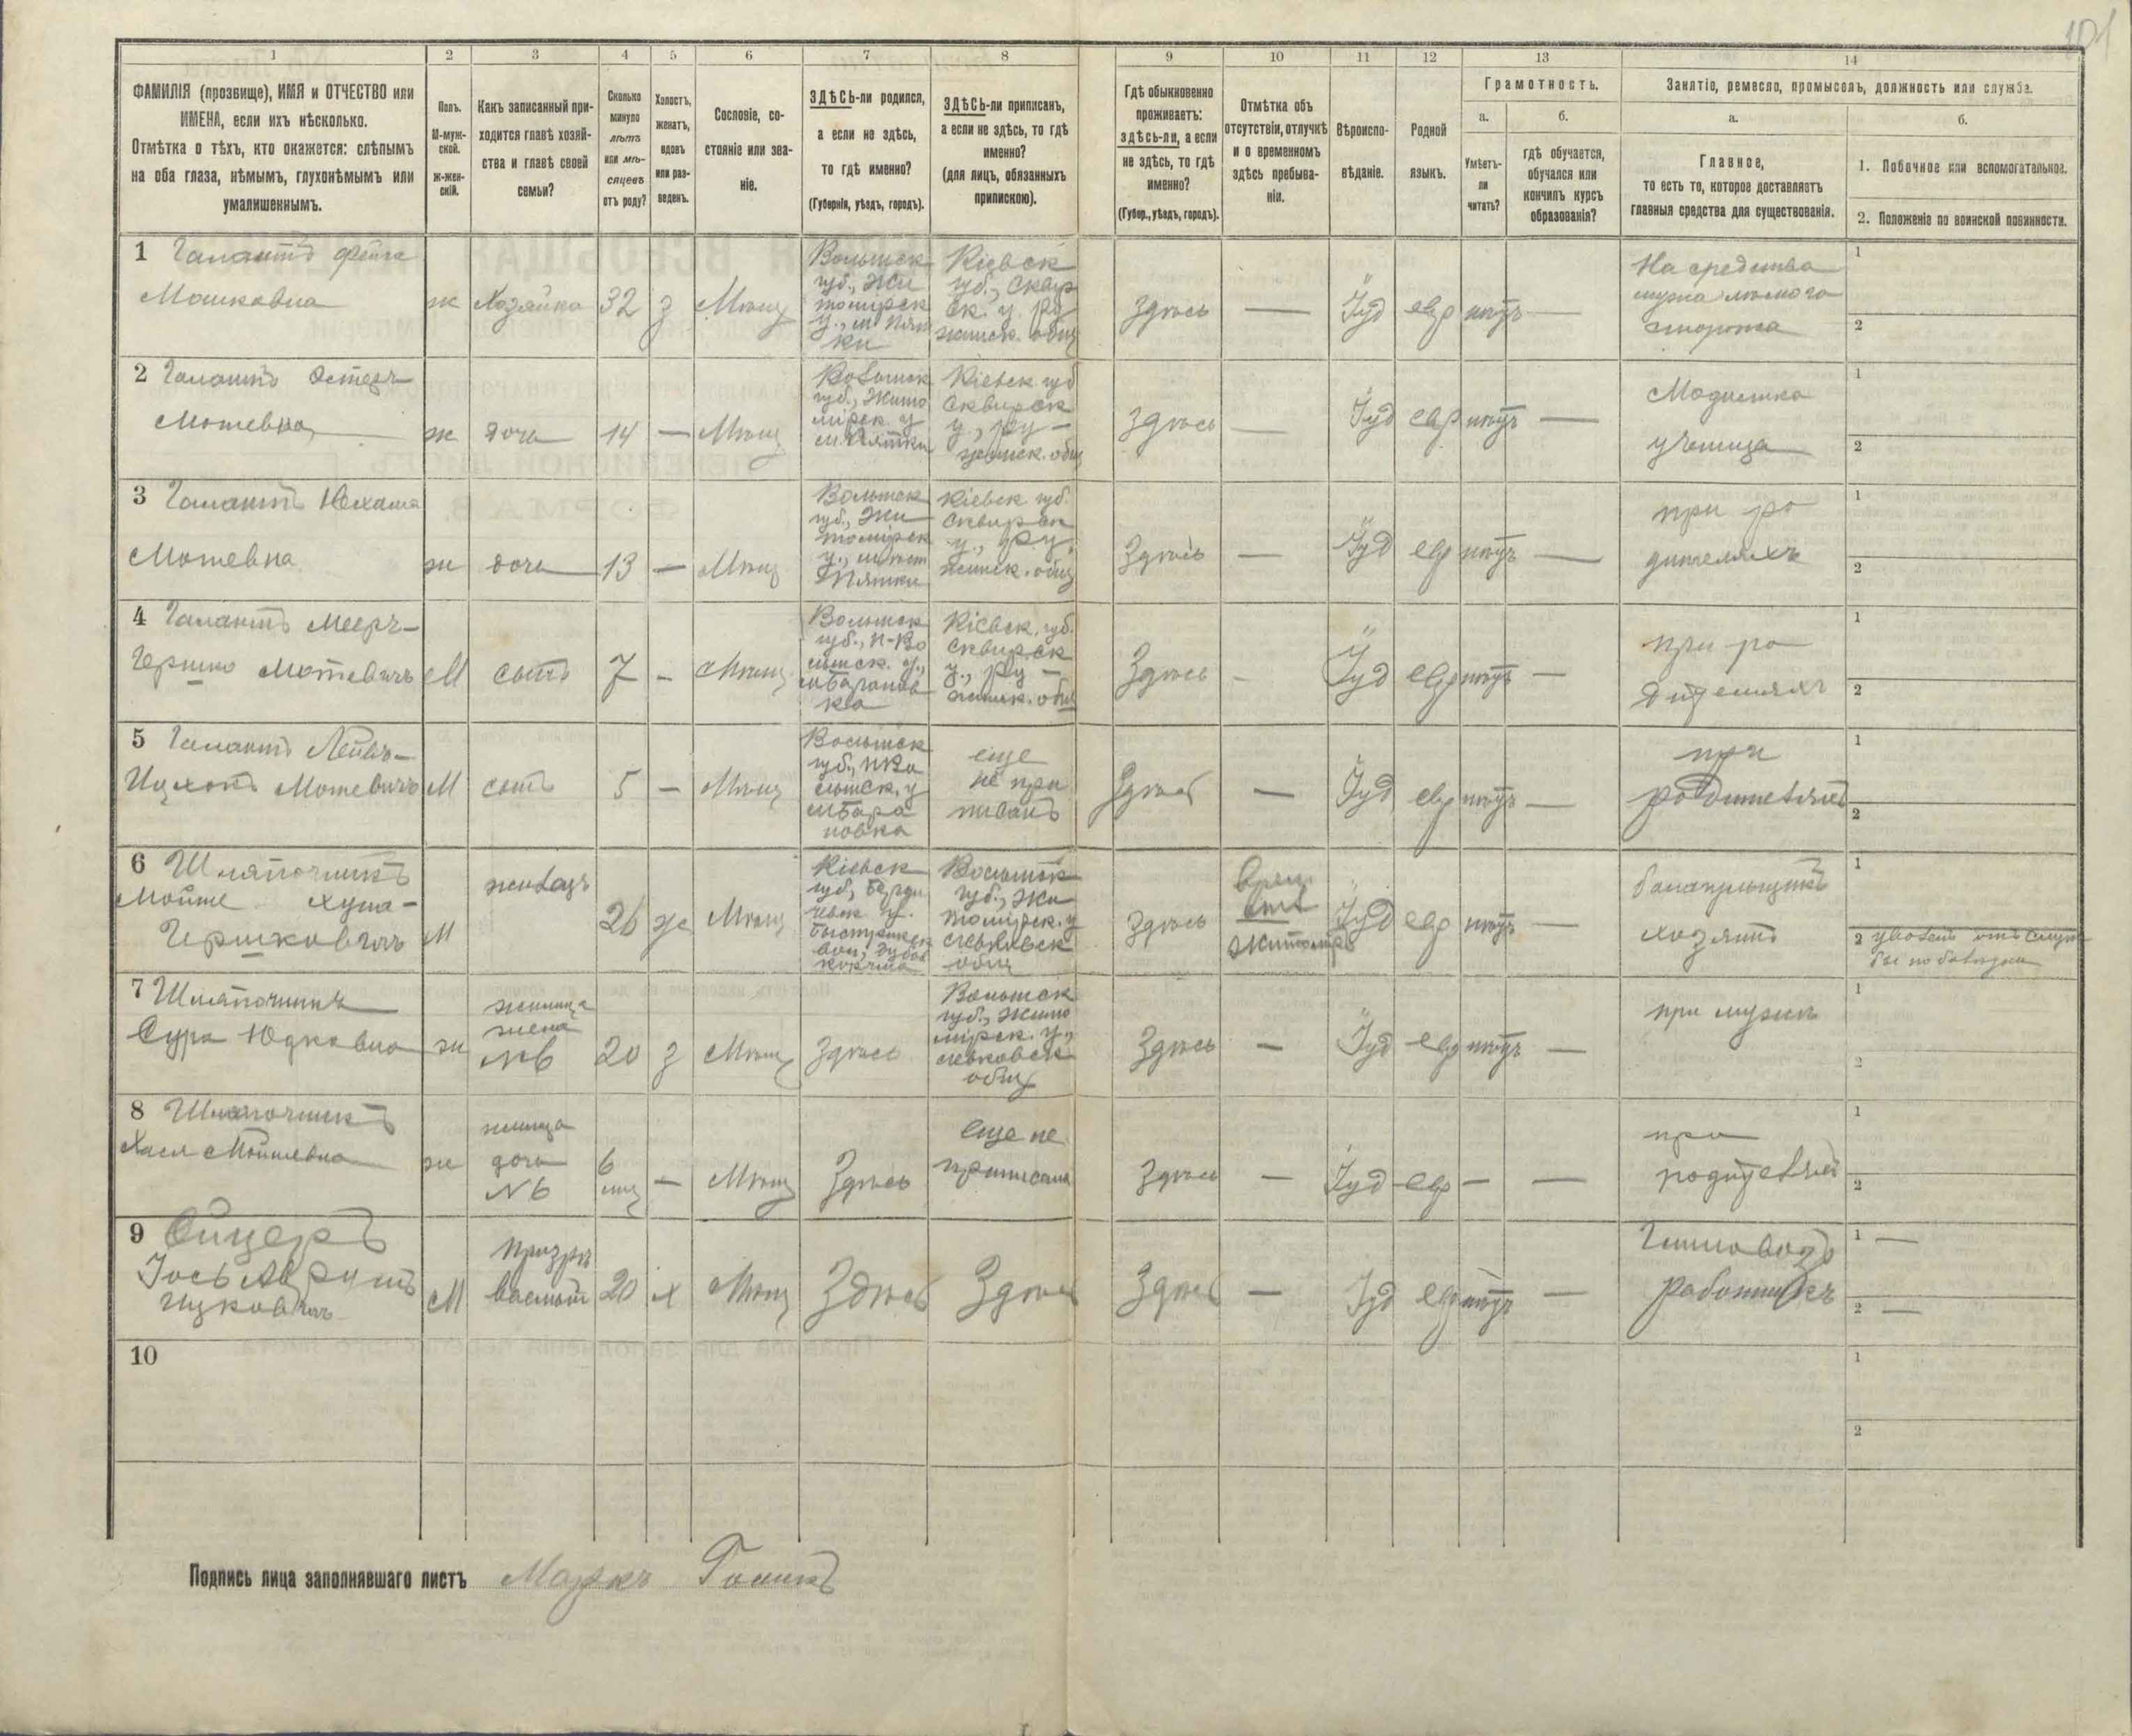 101
1 2 3 4 5 6 7 8 9 10 11 12 13 14
ФАМИЛІЯ (прозвище), ИМЯ и ОТЧЕСТВО или
ИМЕНА, если ихъ нѣсколько.
Отмѣтка о тѣхъ, кто окажется: слѣпымъ
на оба глаза, нѣмымъ, глухонѣмымъ или
умалишеннымъ.
Полъ.
М-муж-
ской.
ж-жен-
скій.
Какъ записанный при-
ходится главѣ хозяй-
ства и главѣ своей
семьи?
Сколько
минуло
лѣтъ
или мѣ-
сяцевъ
отъ роду?
Холостъ,
женатъ,
вдовъ
или раз-
веденъ.
Сословіе, со-
стояніе или зва-
ніе.
ЗДѢСЬ-ли родился,
а если не здѣсь,
то гдѣ именно?
(Губернія, уѣздъ, городъ).
ЗДѢСЬ-ли приписанъ,
а если не здѣсь, то гдѣ
именно?
(для лицъ, обязанныхъ
припискою).
Гдѣ обыкновенно
проживаетъ:
здѣсь-ли, а если
не здѣсь, то гдѣ
именно?
(Губер., уѣздъ, городъ).
Отмѣтка объ
отсутствіи, отлучкѣ
и о временномъ
здѣсь пребыва-
ніи.
Вѣроиспо-
вѣданіе.
Родной
языкъ.
Грамотность.
а.
Умѣетъ-
ли
читать?
б.
гдѣ обучается,
обучался или
кончилъ курсъ
образованія?
Занятіе, ремесло, промыселъ, должность или служба.
а.
Главное,
то есть то, которое доставляетъ
главныя средства для существованія.
б.
1. Побочное или вспомогательное.
2. Положеніе по воинской повинности.
1 Галантъ Фейга
Мошковна
ж Хозяйка 32 з Мѣщ
Волынск
губ., Жи
томірск
у., м Пят
ки
Кіевск
губ., Сквир
ск. у. Ру
жинск. общ
Здѣсь — Іуд евр нѣтъ —
На средства
мужа лѣсного
сторожа
1
2
2 Галантъ Эстеръ
Мотевна
ж дочь 14 — Мѣщ
Волынск
губ., Жито
мірск у
м. Пятки
Кіевск губ
Сквирск
у., Ру-
жинск. общ
Здѣсь — Іуд евр нѣтъ —
Модистка
ученица
1
2
3 Галантъ Нехама
Мотевна
ж дочь 13 — Мѣщ
Волынск
губ., Жи
томірск
у.,
Пятки
Кіевск. губ.
Сквирск
у., Ру
жинск. общ
Здѣсь — Іуд евр нѣтъ —
при ро
дителяхъ
1
2
4 Галантъ Мееръ-
Гершко Мотевичъ
М сынъ 7 - Мѣщ
Волынск
губ., Н-Во
лынск. у.,
м Баранов
ка
Кіевск. губ.
Сквирск
у., Ру-
жинск. общ
Здѣсь - Іуд евр нѣтъ —
при ро
дителяхъ
1
2
5 Галантъ Лейбъ-
Ицхокъ Мотевичъ
М сынъ 5 — Мѣщ
Волынск
губ., НВо
лынск. у
м Бара
новка
еще
не при
писанъ
Здѣсь — Іуд евр нѣтъ —
при
родителяхъ
1
2
6 Шляпочникъ
Мойше Хуна-
Гершковичъ
М жилецъ 26 ж Мѣщ
Кіевск
губ., Берди
чевск у.
Быстрикск
вол.,
корчма
Волынск
губ., Жи
томірск. у
Левковск
общ
Здѣсь
Житомірѣ
Іуд евр нѣтъ —
балагульщикъ
хозяинъ
1
2 уволенъ отъ служ
бы
7 Шляпочникъ
Сура Юдковна
ж
жилица
жена
№6
20 з Мѣщ Здѣсь
Волынск
губ., Жито
мірск. у.,
Левковск
общ
Здѣсь — Іуд евр нѣтъ —
при мужѣ
1
2
8 Шляпочникъ
Хася Мойшевна
ж
жилица
дочь
№6
6
мц
— Мѣщ Здѣсь
еще не
приписана
Здѣсь — Іуд евр — —
при
родителяхъ
1
2
9
Іось Аврумъ
Ицковичъ
М
призрѣ
ваемый
20 х Мѣщ Здѣсь Здѣсь Здѣсь — Іуд евр нѣтъ —
работникъ
1 —
2 —
10
1
2
Подпись лица заполнявшаго листъ Маркъ